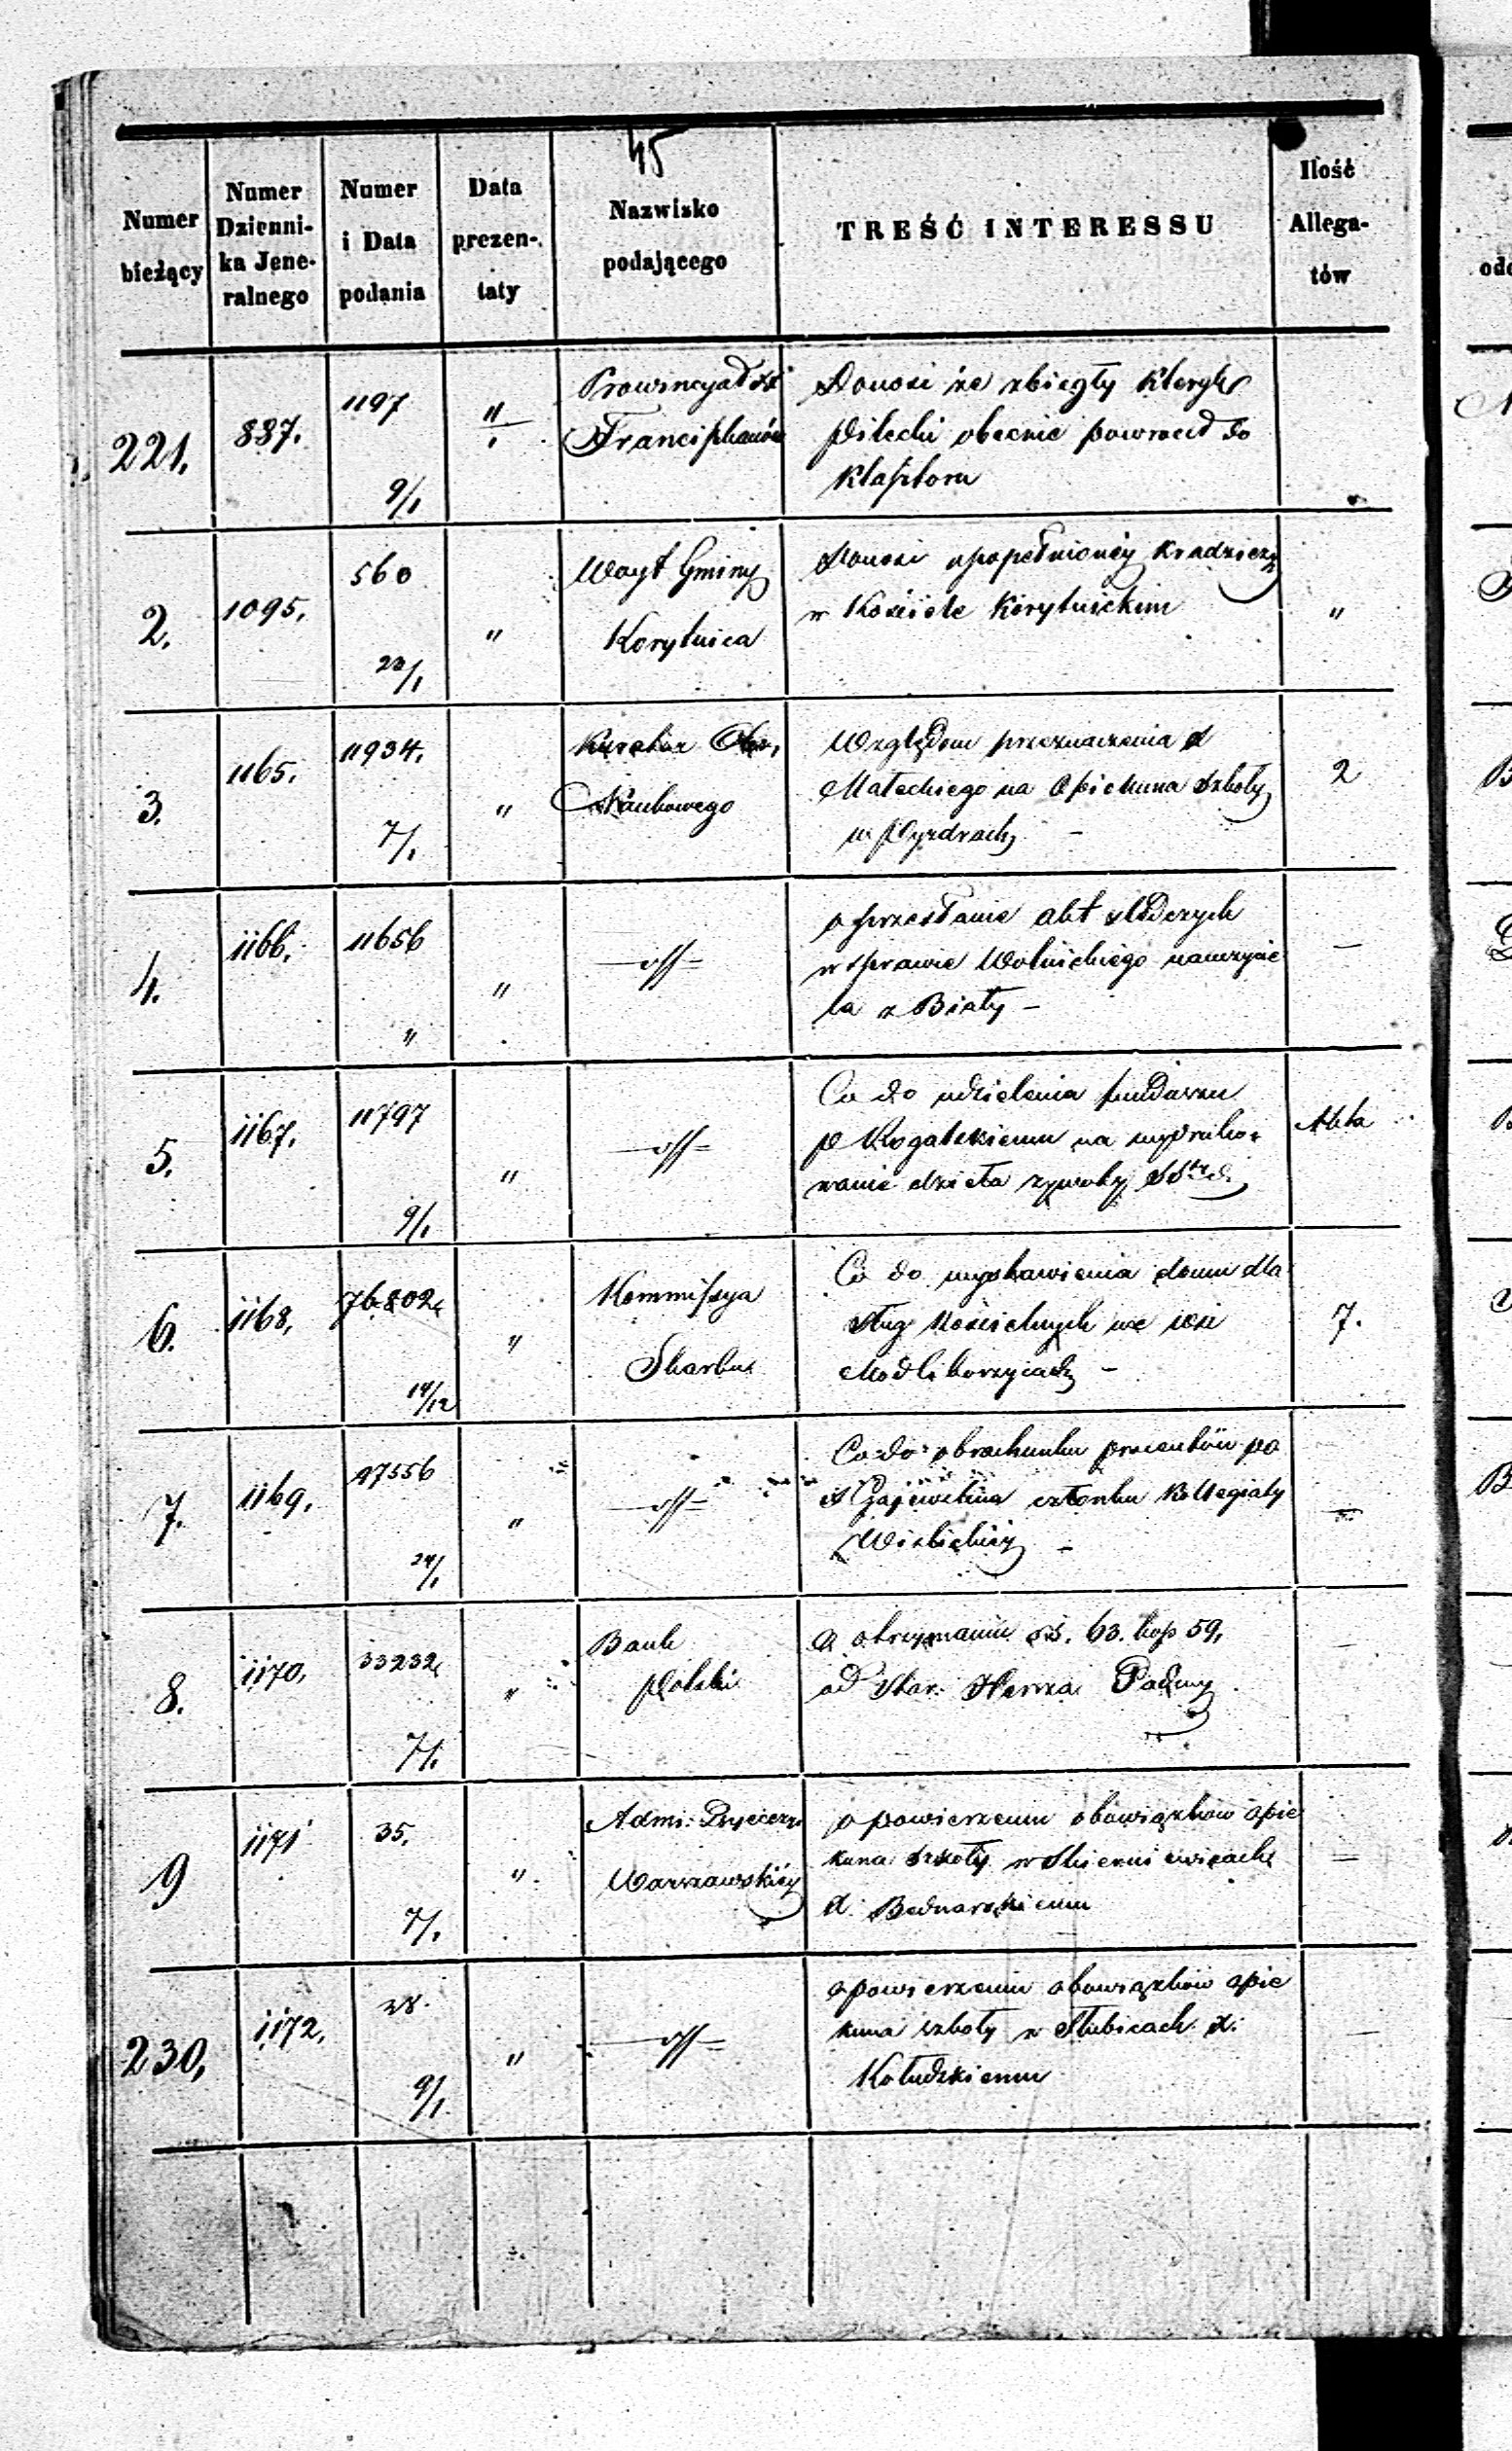 45
Numer bieżący
Numer Dzienni- ka Jene- ralnego
Numer i Data podania
Data prezen- taty
Nazwisko podającego
TREŚĆ INTERESSU
Ilość Allega- tów
221.
887.
1197
9/1
"
Prowincyał
Franciszkanów
Donosi że zbiegły kleryk
Pilecki obecnie powrócił do
klasztoru
2.
1095.
560
23/1
"
Woyt Gminy
Korytnica
Donosi o popełnionéy kradzieży
w Kościele Korytnickim
"
3.
1165.
11934.
7/1
"
Kurator
Naukowego
Względem przeznaczenia X
Małeckiego na Opiekuna Szkoły
w Pyzdrach –
2
4.
1166.
11656
"
"
—off—
o przesłanie akt śledczych
w sprawie Wolnickiego nauczycie
la z Biały –
—
5.
1167.
11797
9/1
"
—off—
Co do udzielenia funduszu
P Rogalskiemu na wydruko-
wanie dzieła żywoty
Akta
6.
1168.
76802
14/12
"
Kommissya
Skarbu
Co do wystawienia domu dla
sług kościelnych we wsi
Modliborzycach –
7.
7.
1169.
97556
24/1
"
—off—
Co do obrachunku procentów po
X Gajewskim członku Kollegiaty
Wiślickiéy –
—
8.
1170.
33232
7/1
"
Bank
Polski
O otrzymaniu rs. 63. kop 59.
od Star. Hersza
9
1171
35.
7/1
"
Admi:
Warszawskiéy
o powierzeniu obowiązków opie
kuna szkoły w Skierniewicach
X. Bednarskiemu
—
230.
1172.
38.
9/1
"
—off—
o powierzeniu obowiązków opie
kuna szkoły w Słubicach X.
Kołudzkiemu
—